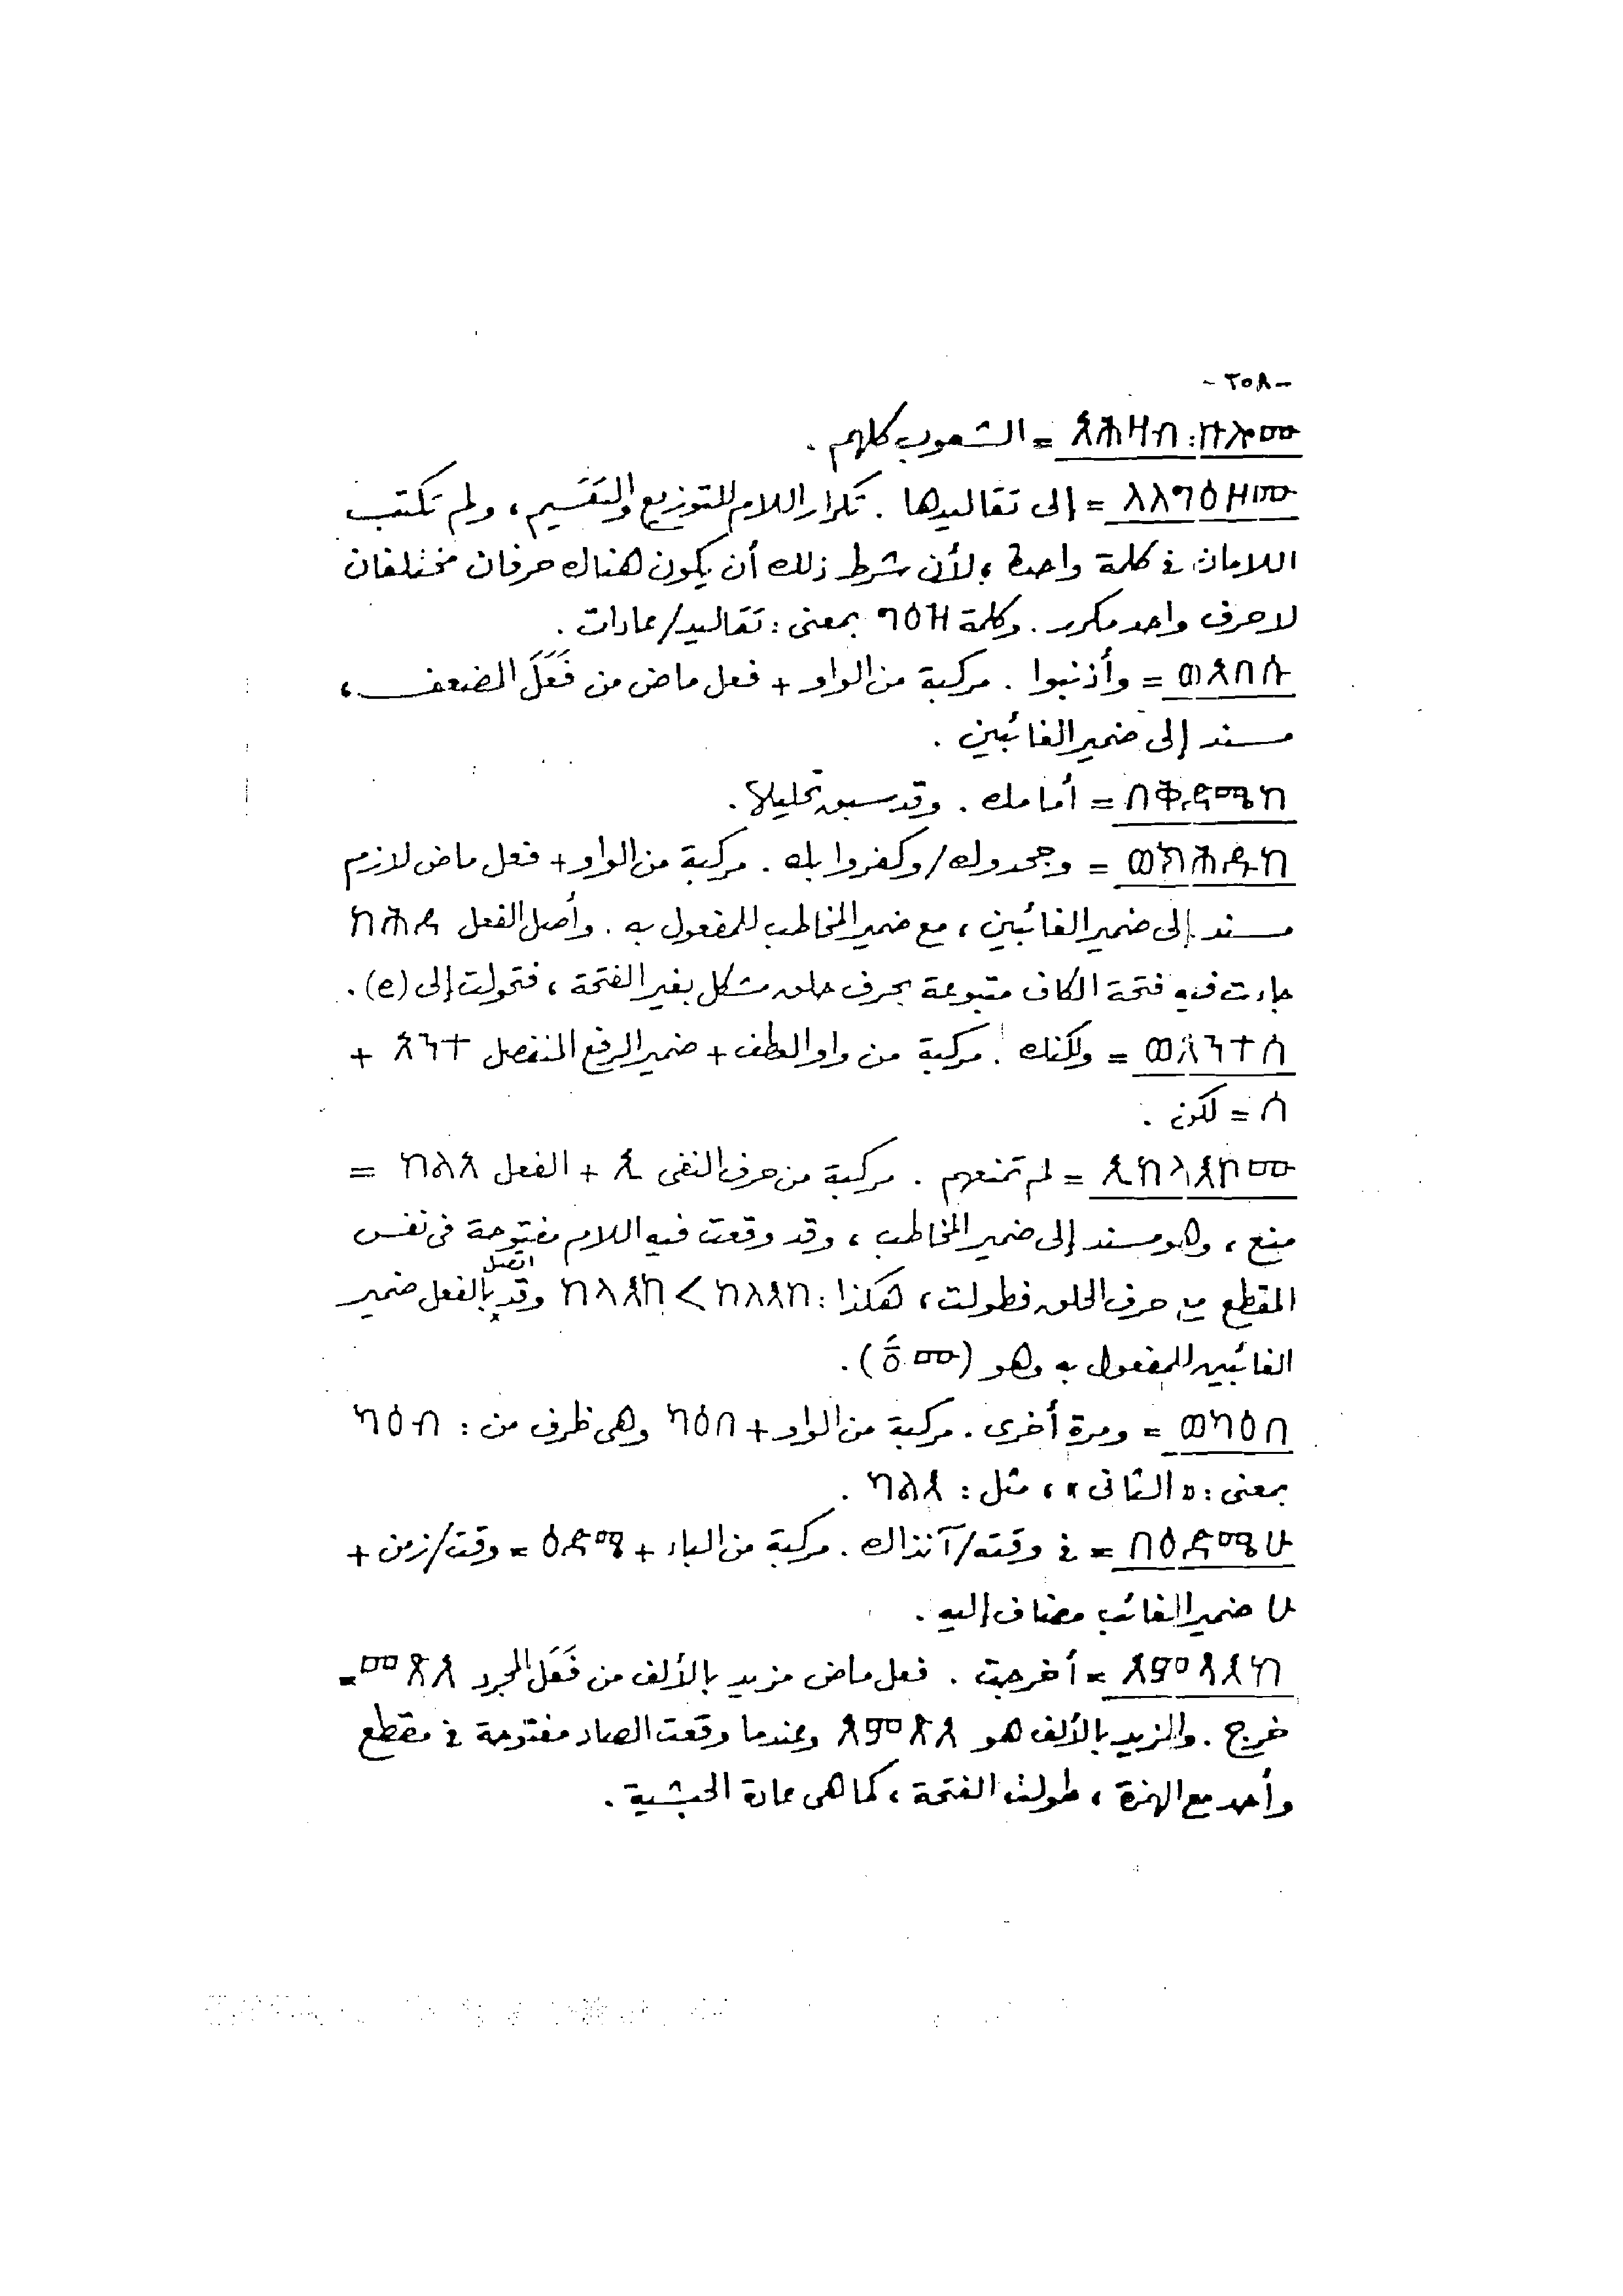 -٢٥٨-
አሕዛብ፡ኵሎሙ = الشعوب كلهم .
ለለግዕዞሙ = إلى تقاليدها . تكرار اللام للتوزيع والتقسيم ، ولم تكتب
اللامان في كلمة واحدة ؛ لأن شرط ذلك أن يكون هناك حرفان مختلفان
لا حرف واحد مكرر . وكلمة ግዕዝ بمعنى : تقاليد/عادات .
ወአበሱ = وأذنبوا . مركبة من الواو + فعل ماض من فَعَّلَ المضعف ،
مسند إلى ضمير الغائبين .
በቅድሜከ = أمامك . وقد سبق تحليلها .
ወክሕዱከ = وجحدوك/وكفروا بك . مركبة من الواو + فعل ماض لازم
مسند إلى ضمير الغائبين ، مع ضمير المخاطب للمفعول به . وأصل الفعل ክሕደ
جاءت فيه فتحة الكاف متبوعة بحرف حلق مشكل بغير الفتحة ، فتحولت إلى (e) .
ወአንተሰ = ولكنك . مركبة من واو العطف + ضمير الرفع المنفصل አንተ +
ሰ = لكن .
ኢከላእኮሙ = لم تمنعهم . مركبة من حرف النفى ኢ + الفعل ከልአ =
منع ، وهو مسند إلى ضمير المخاطب ، وقد وقعت فيه اللام مفتوحة في نفس
المقطع مع حرف الحلق فطولت ، هكذا : ከላእከ < ከለእከ وقد اتصل بالفعل ضمير
الغائبين للمفعول به وهو (ōሙ) .
ወካዕበ = ومرة أخرى . مركبة من الواو + ካዕበ وهى ظرف من : ካዕብ
بمعنى : « الثانى » ، مثل : ካልእ .
በዕድሜሁ = في وقته/آنذاك . مركبة من الباء + ዕድሜ = وقت/زمن +
ሁ ضمير الغائب مضاف إليه .
አውጻእከ = أخرجت . فعل ماض مزيد بالألف من فَعَلَ المجرد ወጽአ =
خرج . والمزيد بالألف هو አውጽአ وعندما وقعت الصاد مفتوحة في مقطع
واحد مع الهمزة ، طولت الفتحة ، كما هى عادة الحبشية .